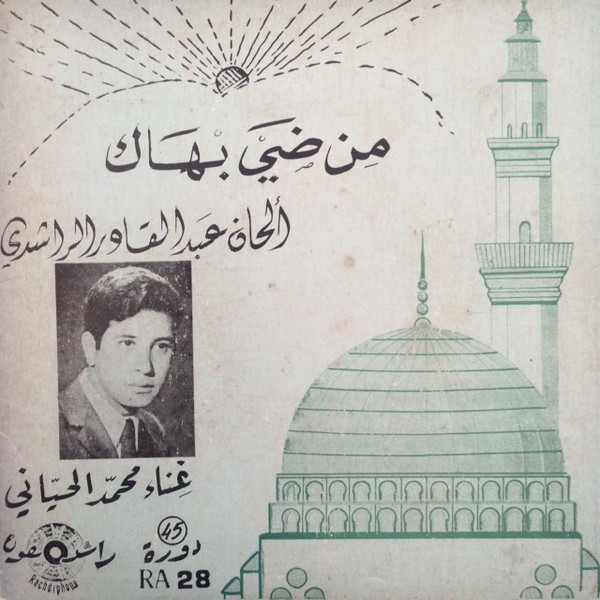 مِن ضَيّ بْهَاك
ألحان عبد القادر الراشدي
غِناء محمّد الحيّاني
45
دورة
راشدفون
Rachdiphone
RA 28